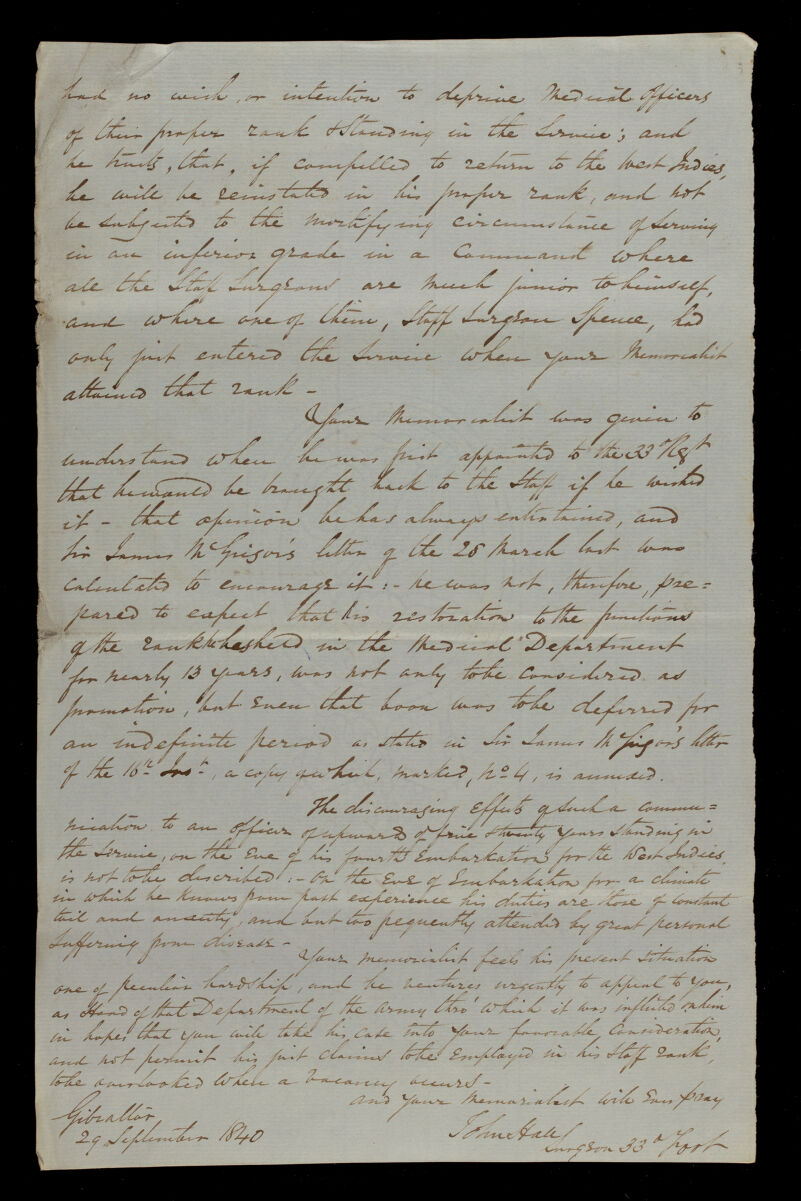 had no wish, or intention to deprive Medical Officers
of their proper rank & standing in the Service; and
he trusts, that, if compelled to return to the West Indies,
he will be reinstated in his proper rank, and not
be subjected to the mortifying circumstance of serving
in an inferior grade in a Command where
all the Staff Surgeons are much junior to himself,
and where one of them, Staff Surgeon Spence, had
only just entered the Service when your Memorialist
attained that rank -
Your Memorialist was given to
understand when he was first appointed to the 33d Regt
that he would be brought back to the Staff if he wished
it - that opinion he has always entertained, and
Sir James McGrigor's letter of the 28 March last was
calculated to encourage it :- he was not, therefore, pre=
pared to expect that his restoration to the functions
of the rank he held in the Medical Department
for nearly 13 years, was not only to be considered as
promotion, but even that boon was to be deferred for
an indefinite period as stated in Sir James McGrigor's letter
of the 16th Inst, a copy of which, marked, No 4, is annexed.
The discouraging effects of such a commu=
nication to an officer of upwards of five & twenty years standing in
the Service, on the Eve of his fourth Embarkation for the West Indies,
is not to be described :- On the Eve of Embarkation for a climate
in which he knows from past experience his duties are those of constant
toil and anxiety, and but too frequently attended by great personal
suffering from disease -
Your memorialist feels his present situation
one of peculiar hardship, and he ventures urgently to appeal to you,
as Head of that Department of the Army thro' which it was inflicted on him
in hopes that you will take his case into your favorable Consideration,
and not permit his just claims to be Employed in his Staff rank,
to be overlooked when a vacancy occurs -
and your Memorialist will Ever pray
Gibraltar
29 September 1840
John Hall
Surgeon 33d Foot